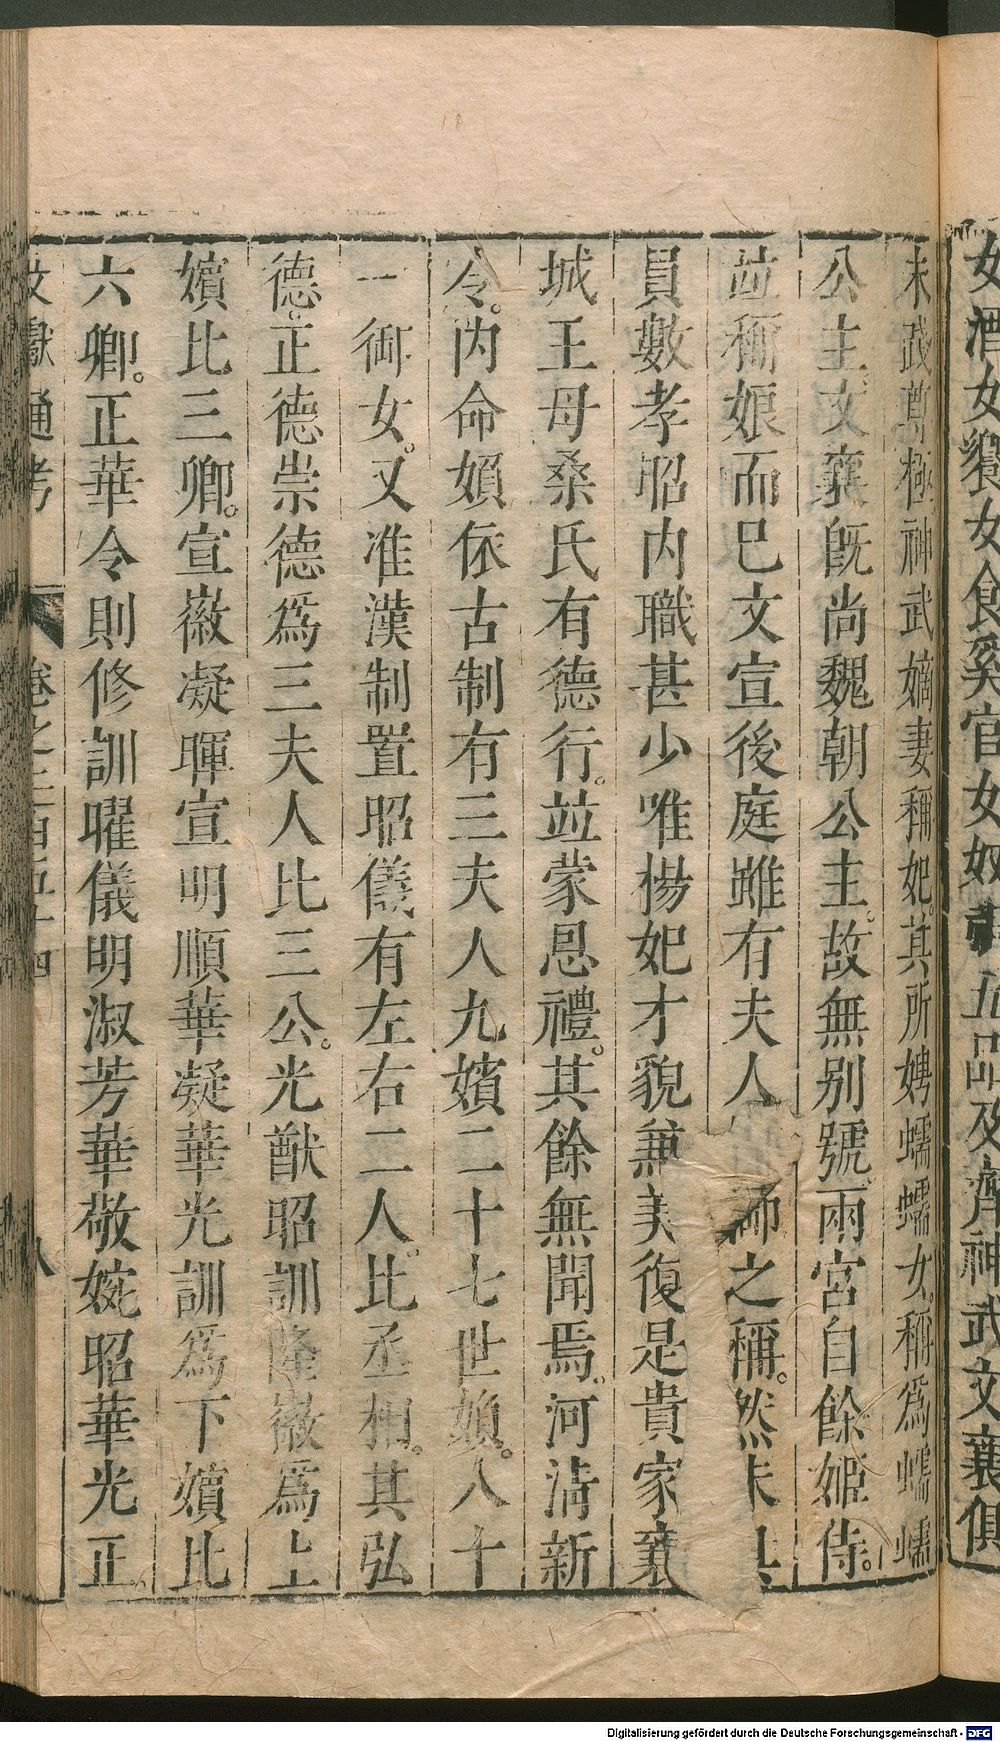 女酒女饗女食奚官女奴
五品及齊神武文襄俱
未踐尊極神武嫡妻稱妃其所娉蠕蠕女稱爲蠕蠕
公主文襄旣尚魏朝公主故無别號兩宮自餘姬侍
竝稱娘而已文宣後庭雖有夫人 之稱然未具
員數孝昭内職甚少唯楊妃才貌兼美復是貴家襄
城王母桑氏有德行竝蒙恩禮其餘無聞焉河清新
令内命婦依古制有三夫人九嬪二十七世婦八十
一御女又准漢制置昭儀有左右二人比丞相其弘
德正德崇德爲三夫人比三公光猷昭訓隆徽爲上
嬪比三卿宣徽凝暉宣明順華凝華光訓爲下嬪比
六卿正華令則修訓曜儀明淑芳華敬婉昭華光正
文獻通考 卷之二百五十四 八
Digitalisierung gefördert durch die Deutsche Forschungsgemeinschaft - DFG